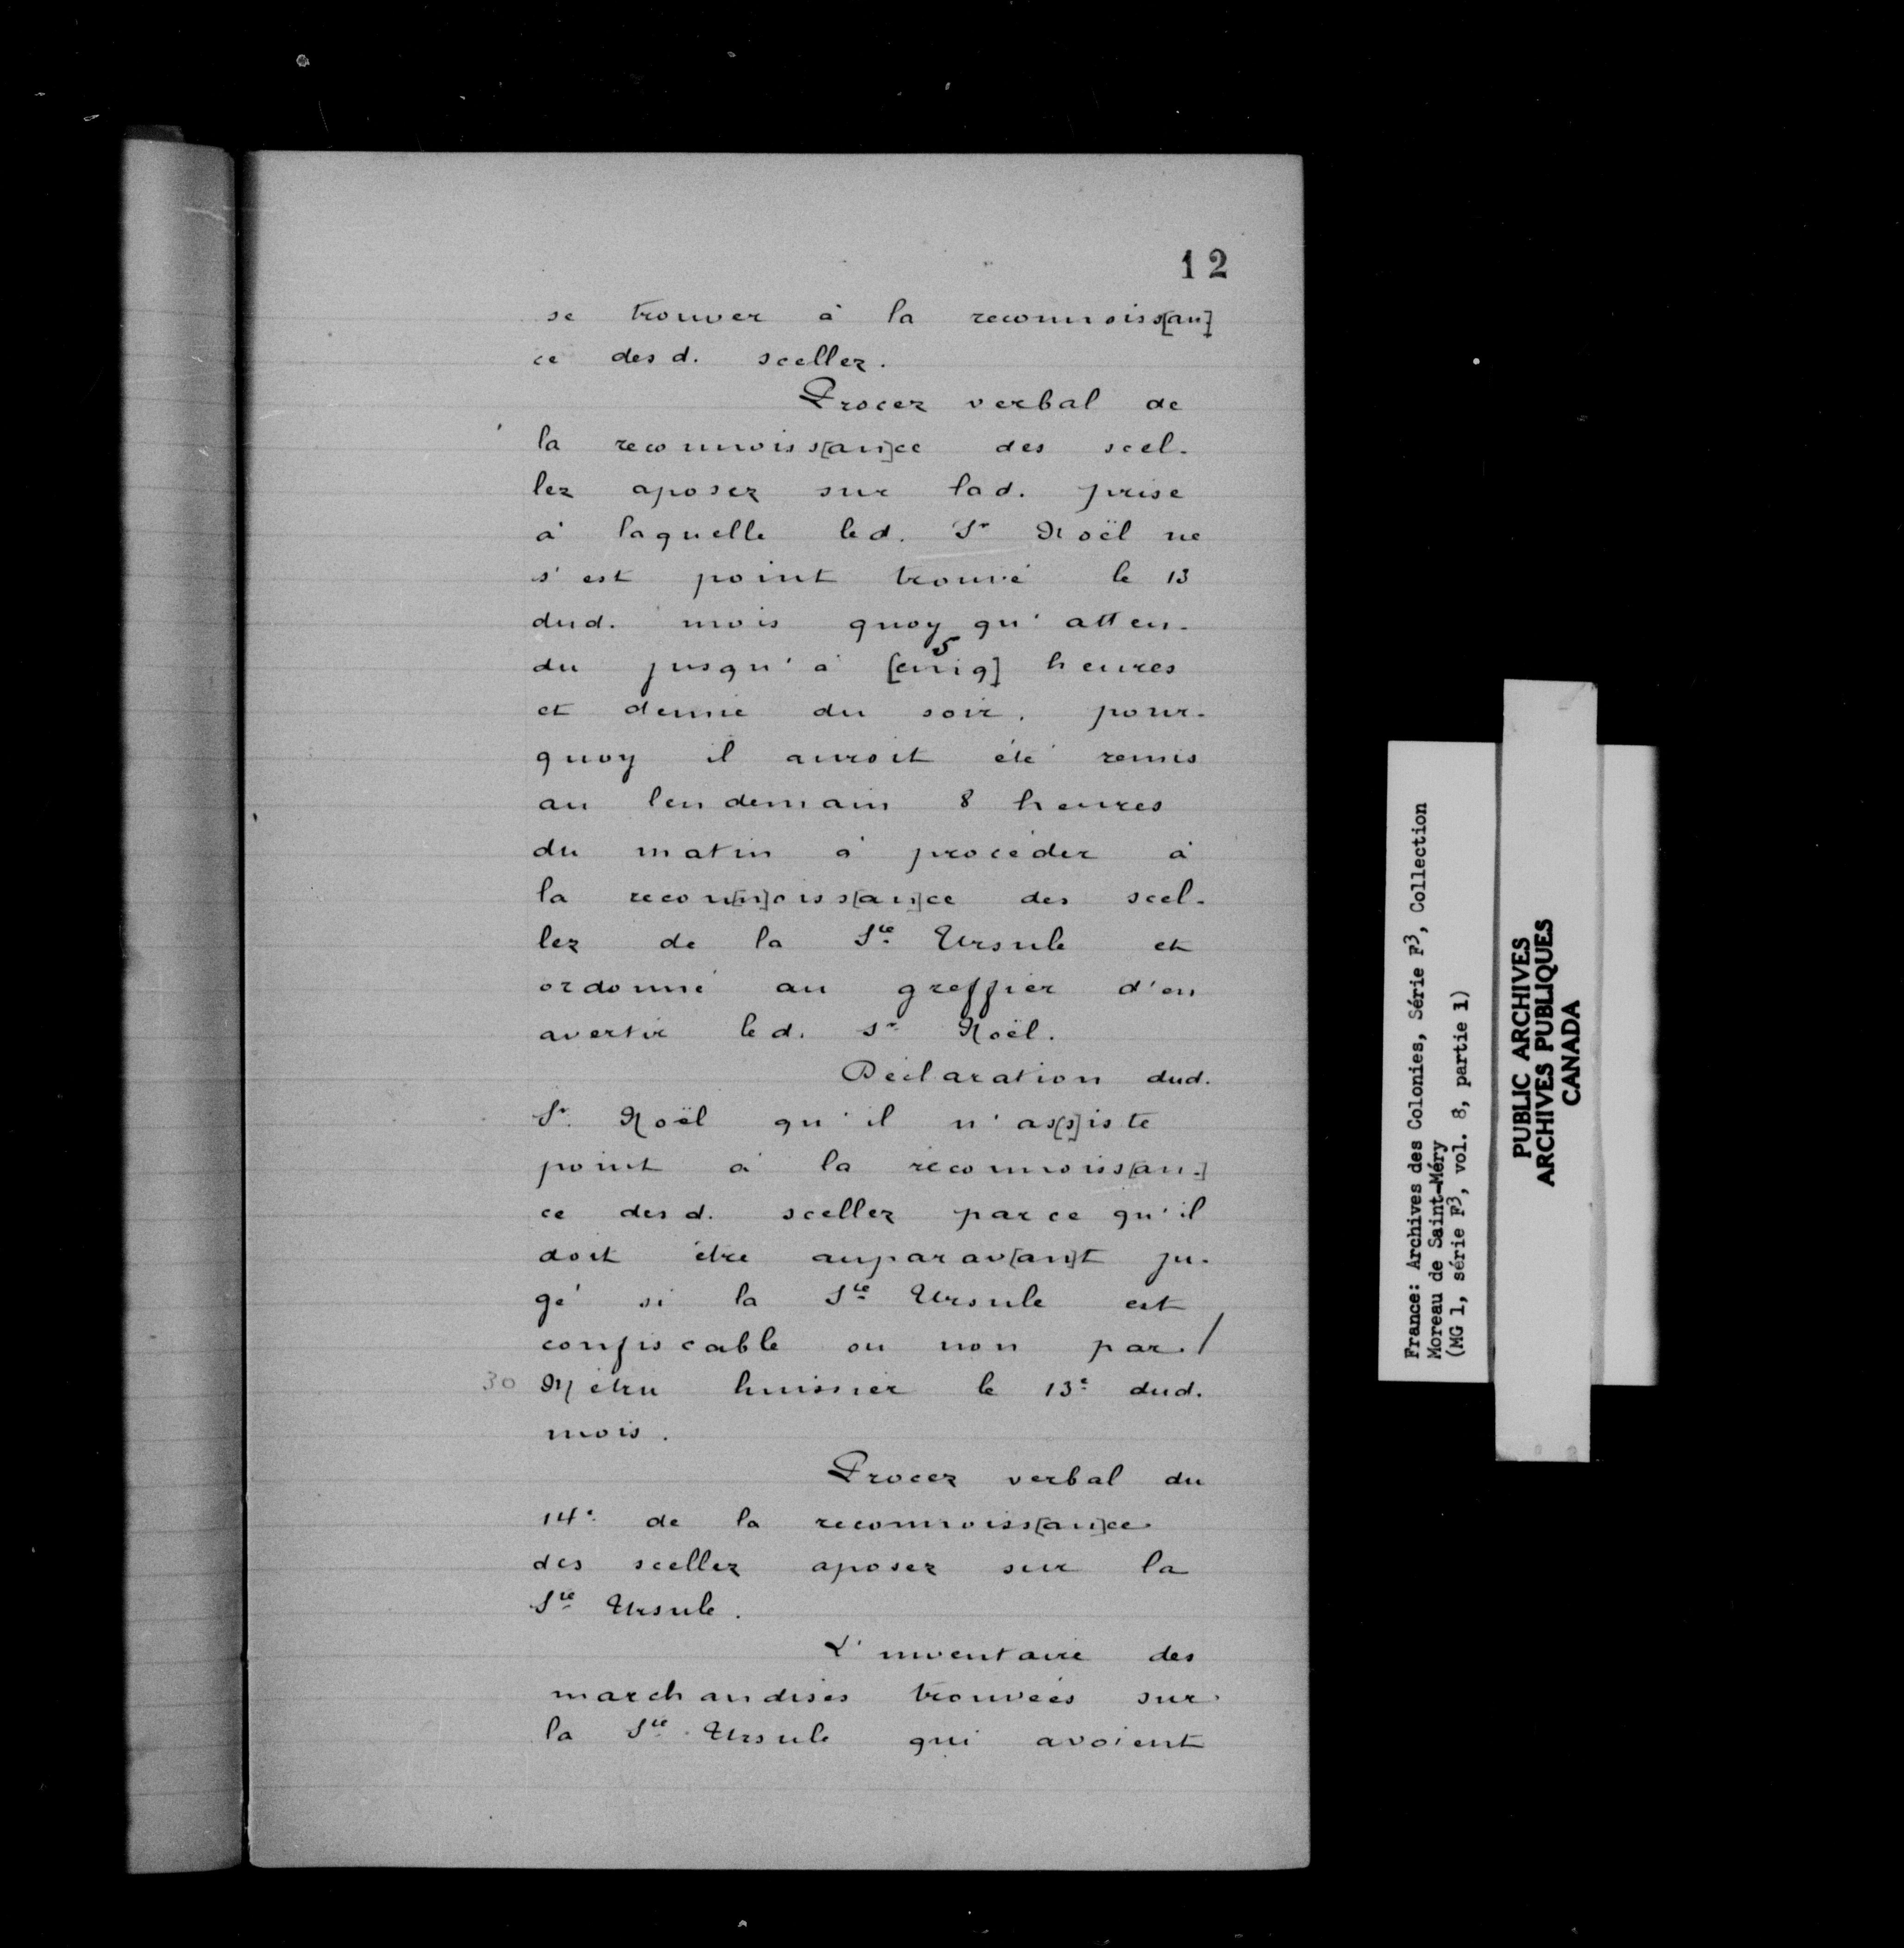 12
se trouver à la reconnoiss[an]
ce des d. scellez.
Procez verbal de
la reconnoiss[an]ce des scel-
lez aposez sur lad. prise
à laquelle led. Sr Noël ne
s'est point trouvé le 13
dud. mois quoy qu'atten-
du jusqu'à [cinq] 5 heures
et demie du soir, pour-
quoy il auroit été remis
au lendemain 8 heures
du matin à procéder à
la recon[n]oiss[an]ce des scel-
lez de la Ste Ursule et
ordonné au greffier d'en
avertir led. sr Noël.
Déclaration dud.
Sr Noël qu'il n'as[s]iste
point à la reconnoiss[an-]
ce des d. scellez parce qu'il
doit être auparav[an]t ju-
gé si la Ste Ursule est
confiscable ou non par /
30 Métru huissier le 13e dud.
mois.
Procez verbal du
14e de la reconnoiss[an]ce
des scellez aposez sur la
Ste Ursule.
L'inventaire des
marchandises trouvées sur
la Ste Ursule qui avoient
France: Archives des Colonies, Série F3, Collection
Moreau de Saint-Méry
(MG 1, série F3, vol. 8, partie 1)
PUBLIC ARCHIVES
ARCHIVES PUBLIQUES
CANADA